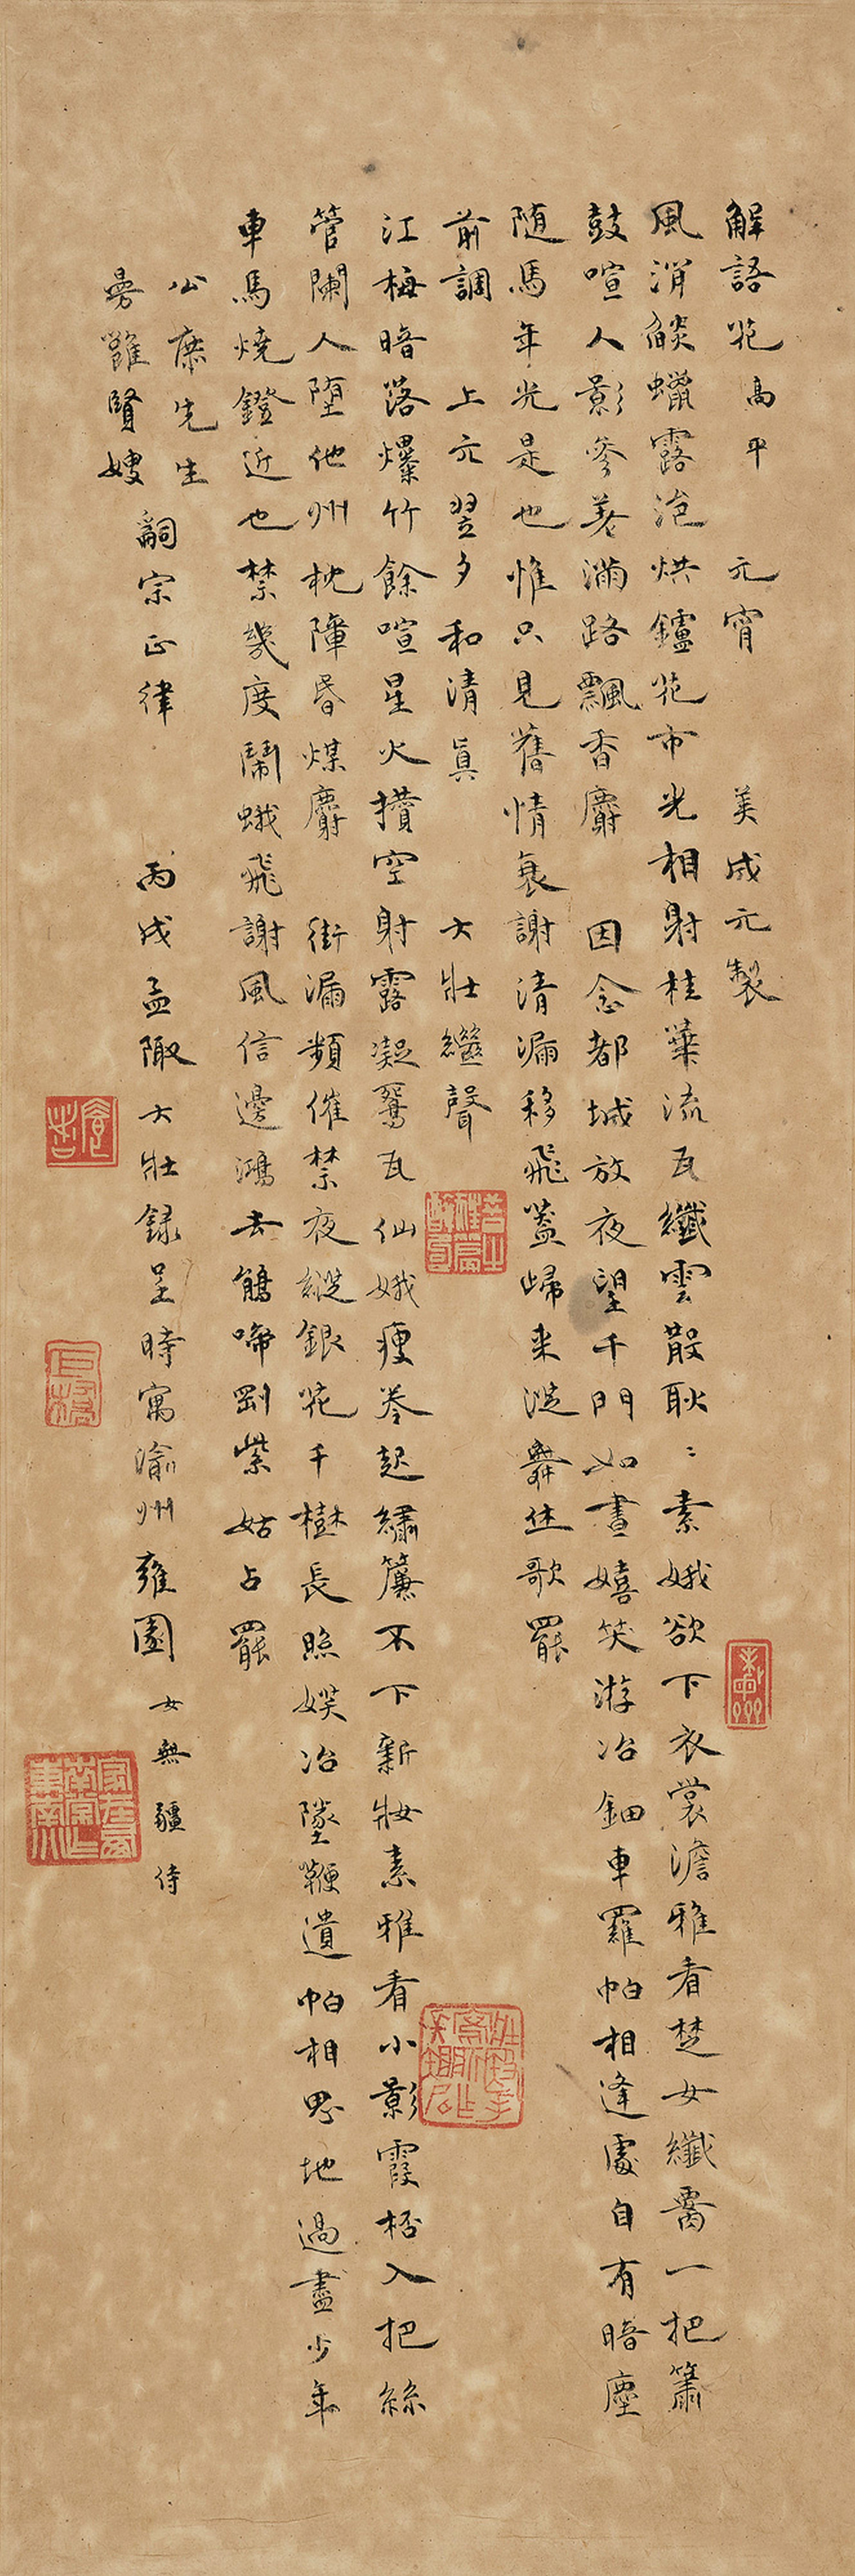 解語花高平 元宵 美成元製
風消燄蠟露浥烘鑪花市光相射桂華流瓦纖雲散耿〻素娥欲下衣裳澹雅看楚女纖䙅一把簫
鼓喧人影參差滿路飄香麝 因念都城放夜望千門如晝嬉笑游冶鈿車羅帕相逢處自有暗塵
隨馬年光是也惟只見舊情衰謝清漏移飛蓋歸來從舞休歌罷
前調 上元翌夕和清真 大壯繼聲
江梅暗落爆竹餘喧星火攢空射露凝鴛瓦仙娥瘦卷起繡簾不下新妝素雅看小影霞桮入把絲
管闌人墮他州枕障昏煤麝 街漏頻催禁夜縱銀花千樹長照娛冶墜鞭遺帕相思地過盡少年
車馬燒鐙近也禁幾度鬧蛾飛謝風信邊鴻去鵤啼剛紫姑占罷
公庶先生
曼雖賢嫂
嗣宗正律 丙戌孟陬大壯錄呈時寓渝州雍園女無疆侍